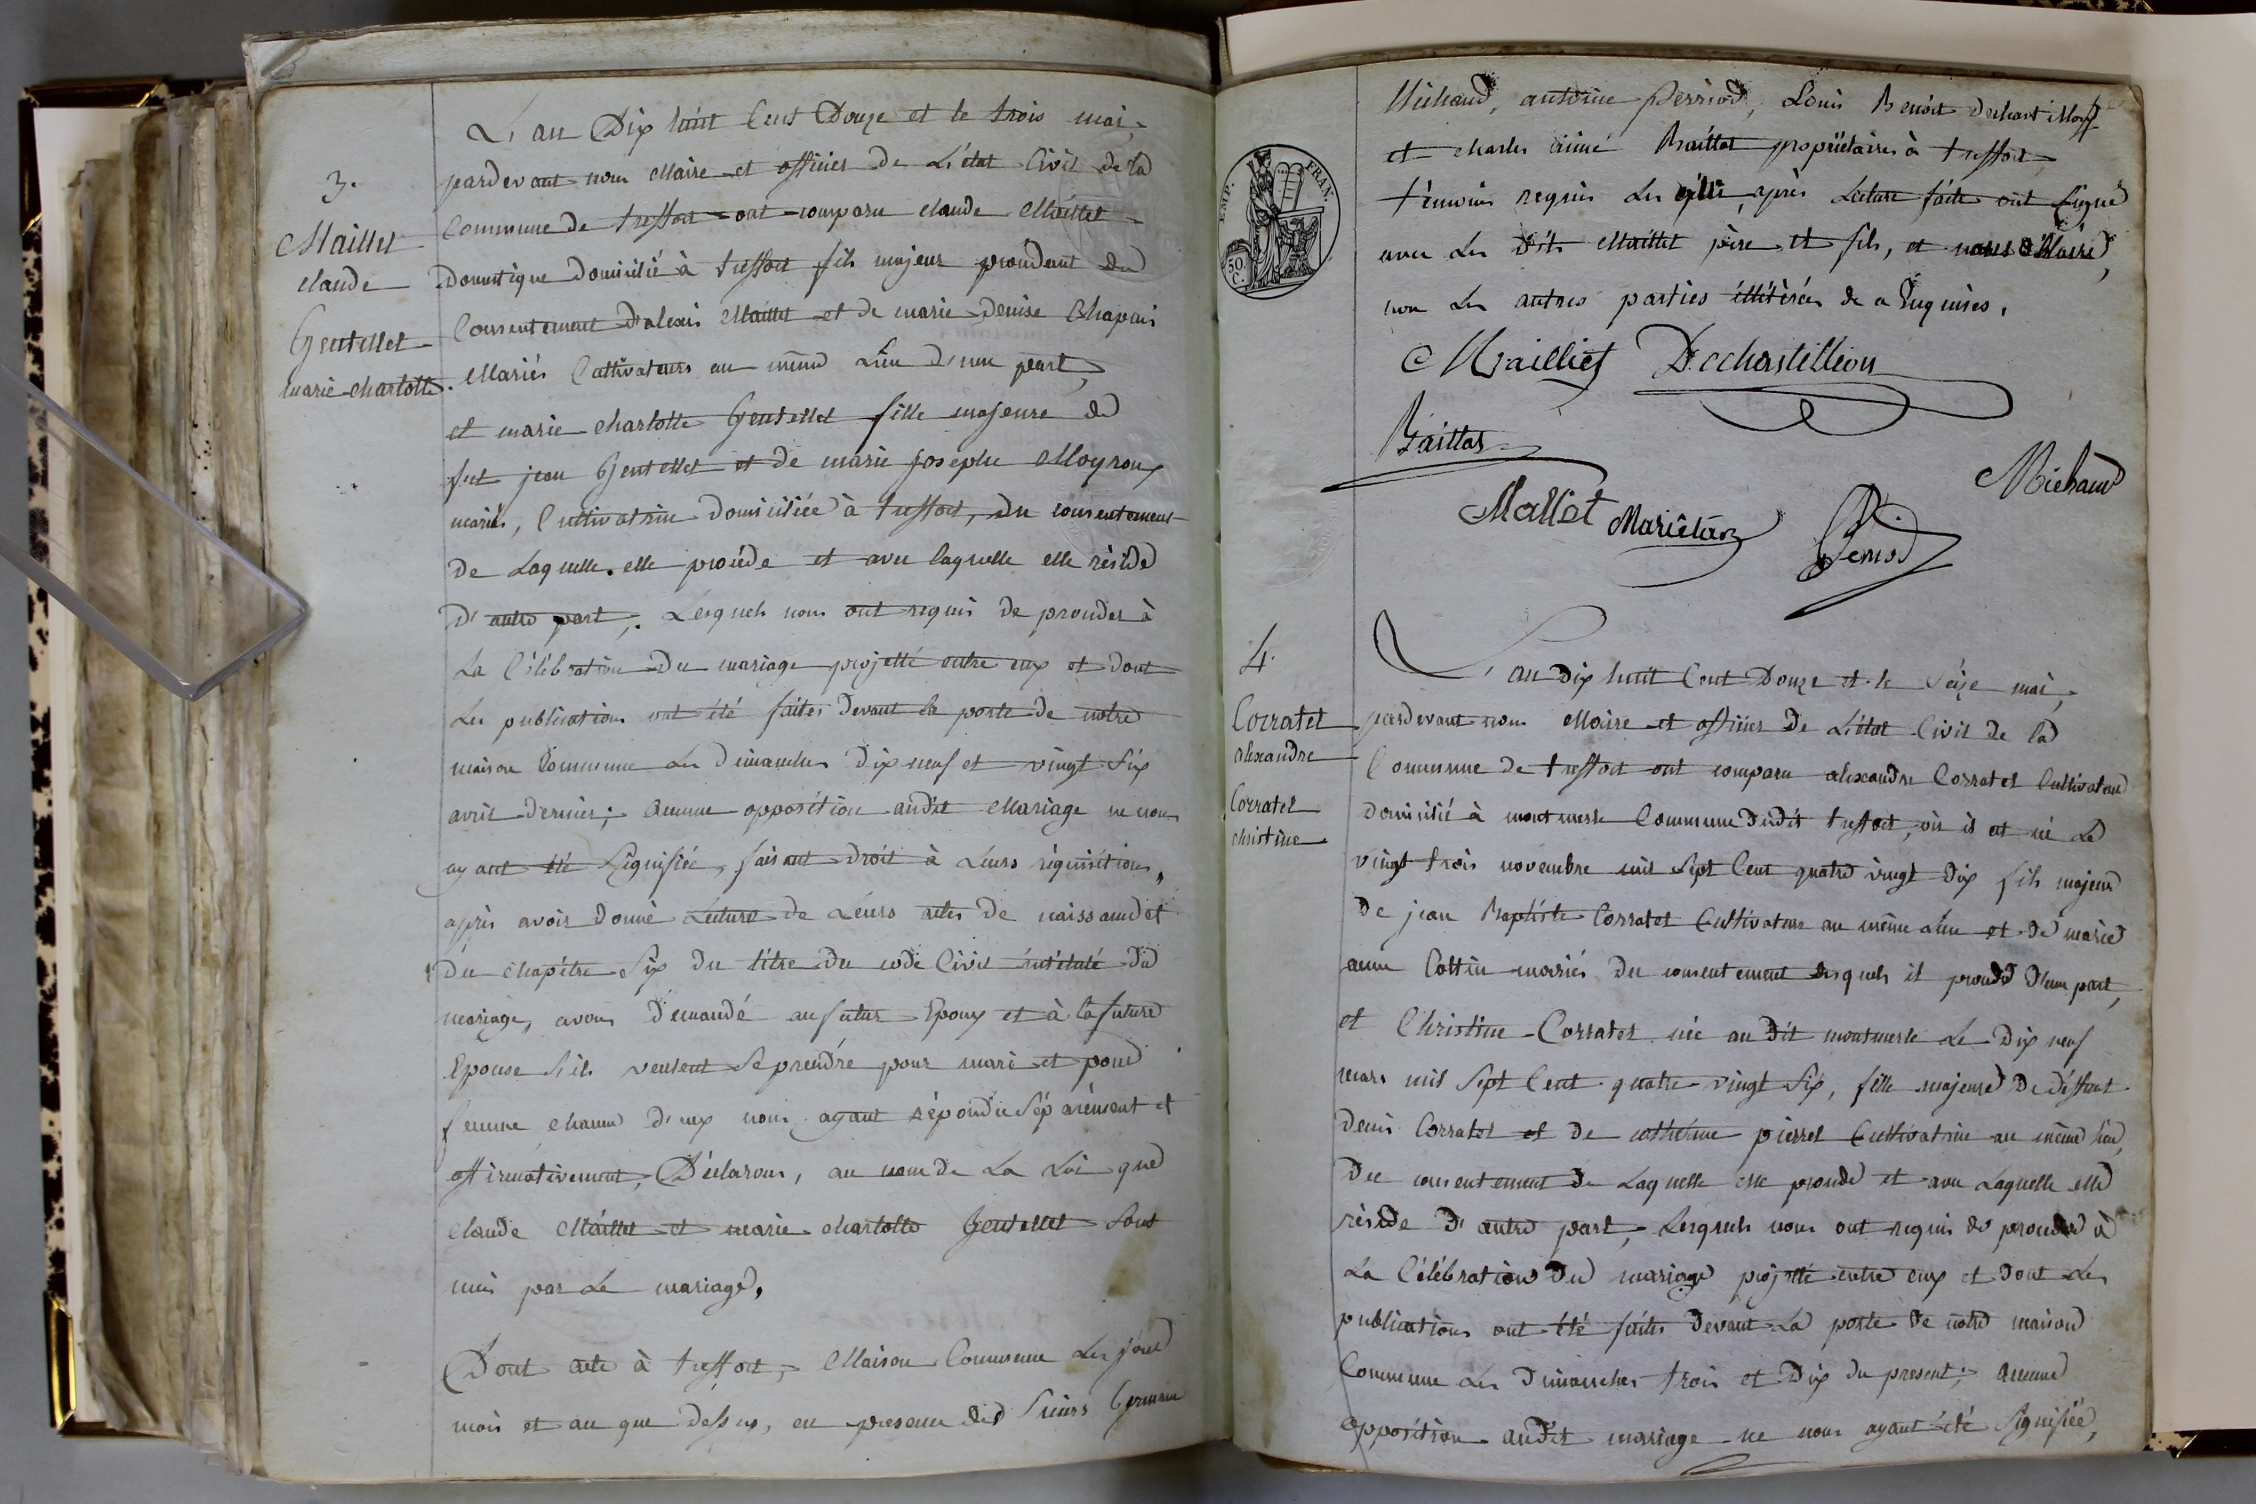 L'an Dix huit Cent Douze et le trois mai,
pardevant nous Maire et officier de L'état Civil de la
Commune de treffort ont comparu claude Maillet
Domestique Domicilié à treffort fils majeur procedant du
Consentement d'alexis Maillet et de marie Denise Chapuis
Mariés Cultivateurs au même Lieu d'une part,
et marie charlotte Gentellet fille majeure de
fut jean Gentellet et de marie josephe Moyroux
mariés, Cultivatrice domiciliée à treffort, du consentement
de Laquelle elle procéde et avec laquelle elle réside
D'autre part, Lesquels nous ont requis de proceder à
La Célébration Du mariage projetté entre eux et dont
Les publications ont été faites Devant la porte de notre
maison Commune Les Dimanches Dix neuf et vingt Six
avril dernier; Aucune opposition audit Mariage ne nous
ayant été Signifiée, faisant droit à Leurs réquisitions,
après avoir donné Lecture de Leurs actes de naissance et
du chapitre Six du titre du code Civil intitulé du
mariage, avons Demandé au futur Epoux et à la future
Epouse S'ils veulent Se prendre pour mari et pour
femme, chacun d'eux nous ayant répondu Séparément et
affirmativement, Déclarons, au nom de La Loi que
claude Maillet et marie charlotte Gentellet Sont
unis par Le mariage.
Dont acte à treffort, Maison Commune Les jour
mois et an que Dessus, en presence des Sieurs Germain
3.
Maillet
claude
Gentellet
marie charlotte
Michaud, antoine Perriod, Louis Benoit Dechastillon
et charles aimé Baillat propriétaires à treffort
témoins requis Les quels, après Lecture faite ont Signé
avec Les Dits Maillet père et fils, et nous Maire,
non Les autres parties illitérées de ce Enquises.
EMP. FRAN.
50 C.
Mailliet Dechastillion
Baillat
Michaud
Mallet Mariétan
Period
4.
Corratet
alexandre
Corratet
christine
L'an Dix huit Cent Douze et le Seize mai,
pardevant nous Maire et officier De L'état Civil de la
Commune de treffort ont comparu alexandre Corratet Cultivateur
domicilié à montmerle Commune dudit treffort, où il est né Le
vingt trois novembre mil Sept Cent quatre vingt Dix fils majeur
De jean Baptiste Corratet Cultivateur au même Lieu et de marie
anne Cottin mariés Du consentement desquels il procéde d'une part,
et Christine Corratet née au dit montmerle Le Dix neuf
mars mil Sept Cent quatre vingt Six, fille majeure De déffunt
Denis Corratet et De catherine pierret Cultivatrice au même lieu,
Du consentement De Laquelle elle procéde et avec Laquelle elle
réside D'autre part, Lesquels nous ont requis de proceder à
La Célébration Du mariage projetté entre eux et Dont Les
publications ont été faites Devant La porte De notre maison
Commune Les Dimanches trois et Dix du present; Aucune
opposition audit mariage ne nous ayant été Signifiée,